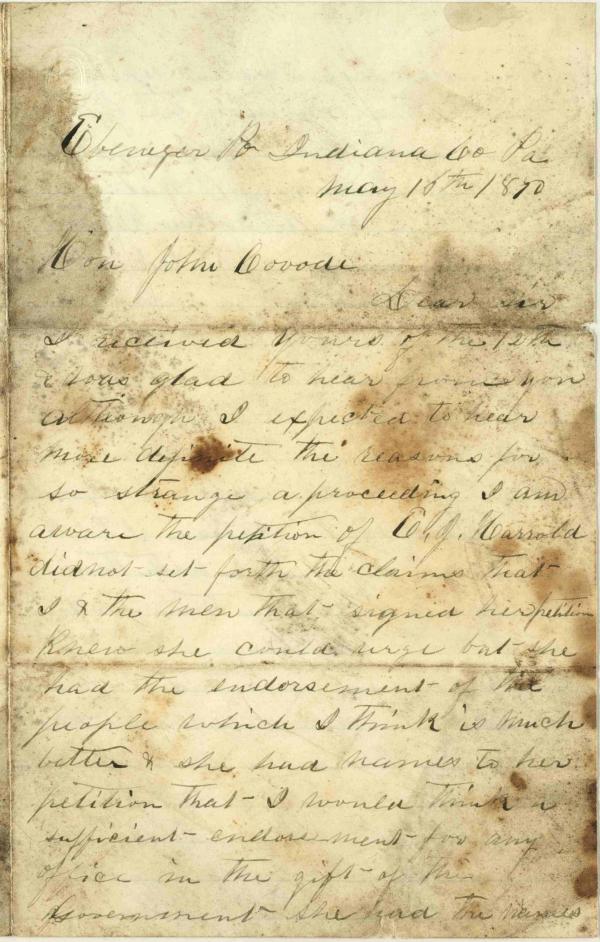 Ebenezer Po Indiana Co Pa
May 16th 1870
Hon John Covode
Dear sir
I received yours of the 12th
& was glad to hear from you
although I expected to hear
more definite the reasons for
so strange a proceeding I am
aware the petition of E. J. Harrold
did not set forth the claims that
I & the men that signed her petition
Knew she could urge but she
had the endorsement of the
people which I think is much
better & she had names to her
petition that I would think a
sufficient endorsement for any
office in the gift of the
Government she had the names